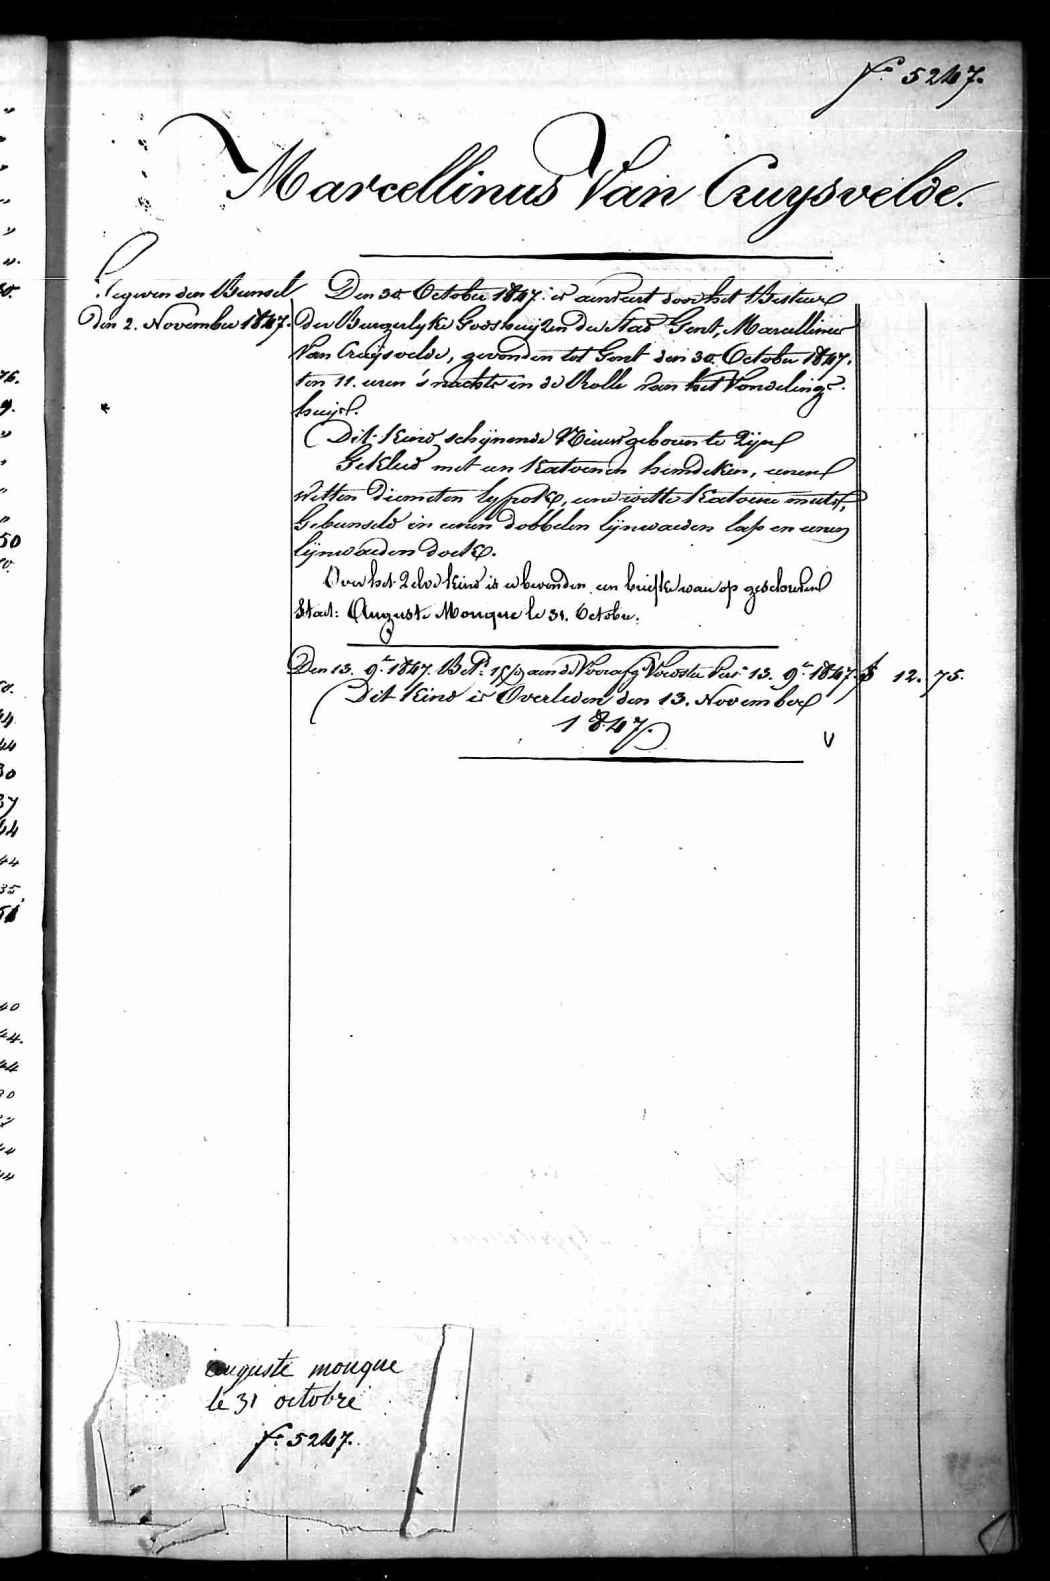 f.° 5247.
Marcellinus Van Cruysvelde.
Gegeven den Bunsel
den 2. November 1847.
Den 30. October 1847. is aenveirt door het Bestuer
der Burgerlyke Godshuyzen der Stad Gent, Marcellinus
Van Cruysvelde, gevonden tot Gent den 30. October 1847.
ten 11. uren 's nachts in de Rolle van het Vondeling-
huys.
Dit Kind schijnende Nieuwgeboren te Zijn
Gekleed met een Katoenen hemdeken, eenen
Witten Diemeten lyfrok, eene witte Katoene muts,
Gebunseld in eenen dobbelen lijnwaeden lap en eenen
lijnwaeden doek.
Over het Zelve kind is er bevonden een briefke waer op geschreven
Staet: Auguste Monque le 31. Octobre.
Den 13. 9.re 1847. Bet. aen de Voedster 13. 9.re 1847. 12. 75.
Dit Kind is Overleden den 13. November
1847.
V
auguste monque
le 31 octobre
f.° 5247.
76.
9.
50
44
30
37
44
44
35